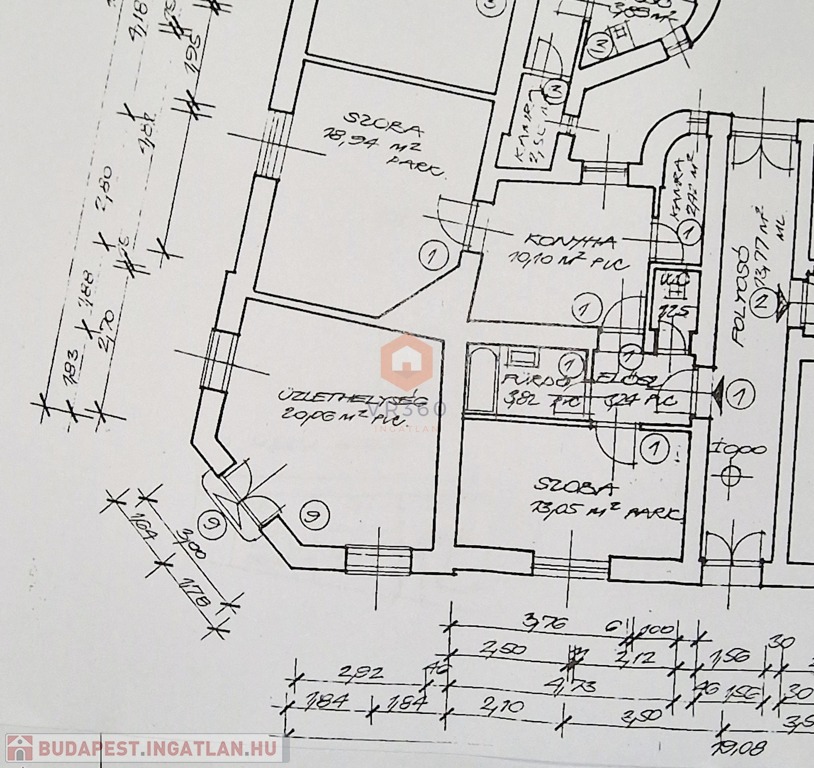 3,68 M²
3
3
3
4,18
75
1,95
4,84
2,80
75
1,88
2,70
1,83
SZOBA
18,94 M²
PARK.
KAMRA
KAMRA
KONYHA
10,10 M² PVC
1
1
1
WC
1,25
FOLYOSÓ
13,77 M²
ML.
2
ÜZLETHELYSÉG
20,06 M² PVC.
FÜRDŐ
3,82 PVC
1
ELŐSZ
3,24 PVC
1
1
1
VR360
INGATLAN
SZOBA
13,05 M² PARK.
9
9
1,64
3,00
1,78
3,76
6
100
2,50
2,12
1,56
30
2,92
46
4,73
46
1,56
30
1,84
1,84
2,10
3,50
3,5
19,08
BUDAPEST.INGATLAN.HU